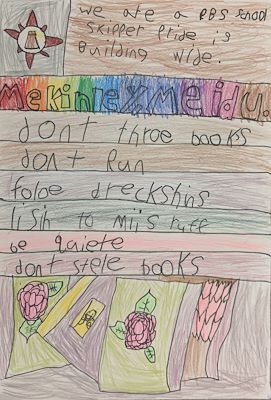 we ate a PBS school
skipper Pride is
Building wide.
dont throe books
dont Run
foloe dreckshins
lisin to Miis ruff
be quiete
dont stele books